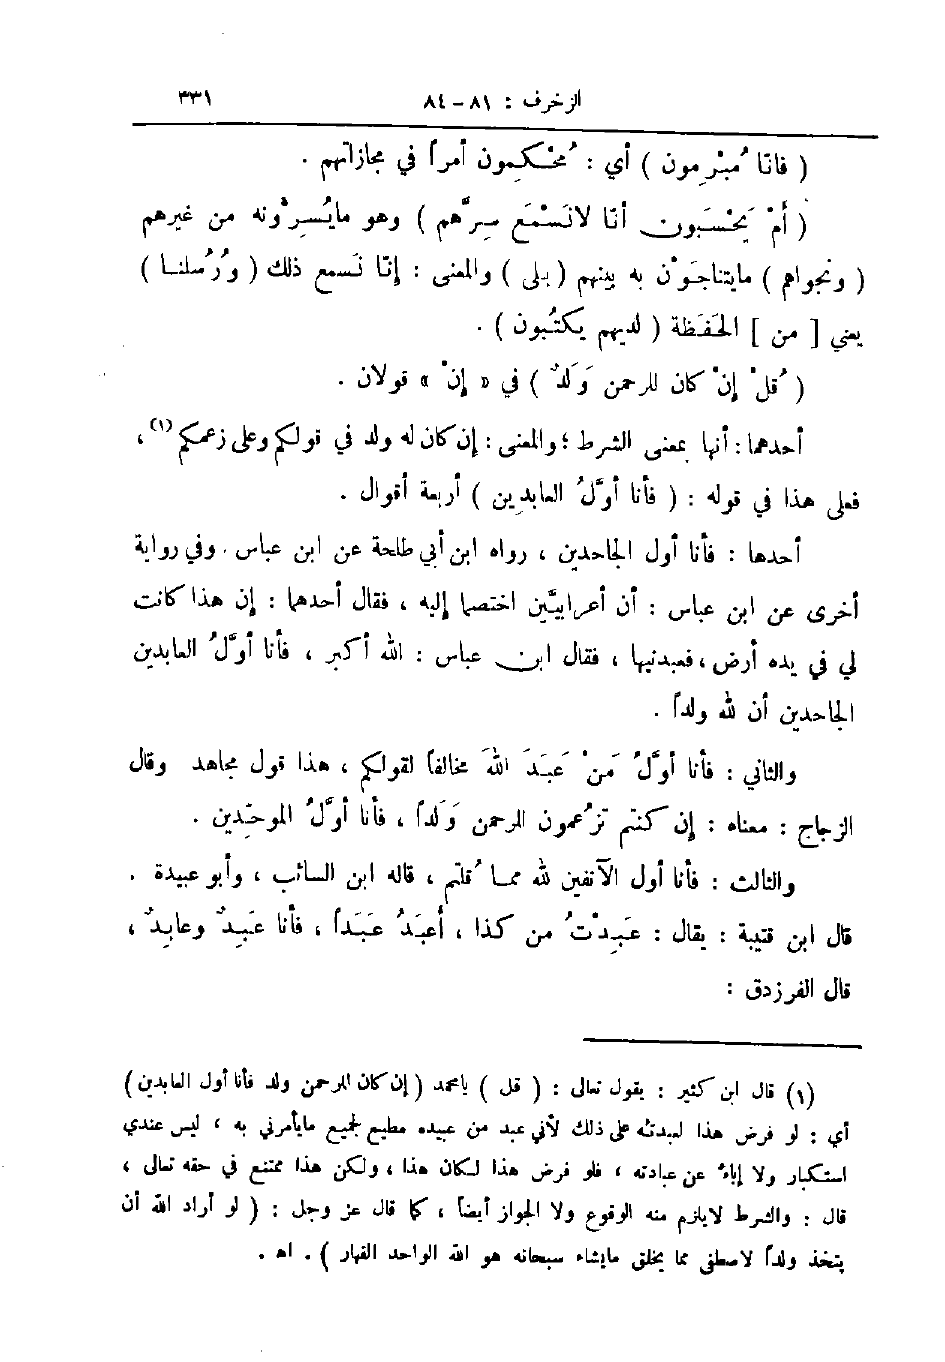 الزخرف : ٨١-٨٤ ٣٣١
( فانّا مُبْرِمون ) أي : مُحْكِمون أمراً في مجازاتهم .
( أَمْ يَحْسَبون أنّا لا نَسْمَع سِرَّهم ) وهو مايُسِرّونه من غيرهم
( ونجواهم ) مايتناجَوْن به بينهم ( بلى ) والمعنى : إنّا نَسمع ذلك ( ورُسُلنا )
يعني [ من ] الحَفَظة ( لديهم يكتُبون ) .
( قُلْ إنْ كان للرحمن وَلَدٌ ) في « إنْ » قولان .
أحدهما : أنها بمعنى الشرط ؛ والمعنى : إن كان له ولد في قولكم وعلى زعمكم (١) ،
فعلى هذا في قوله : ( فأنا أوَّلُ العابدِين ) أربعة أقوال .
أحدها : فأنا أول الجاحدين ، رواه ابن أبي طلحة عن ابن عباس . وفي رواية
أخرى عن ابن عباس : أن أعرابيَّين اختصما إليه ، فقال أحدهما : إن هذا كانت
لي في يده أرض ، فعبدنيها ، فقال ابن عباس : الله أكبر ، فأنا أوَّلُ العابدين
الجاحدين أن لله ولداً .
والثاني : فأنا أوَّلُ مَنْ عَبَدَ اللهَ مخالفاً لقولكم ، هذا قول مجاهد وقال
الزجاج : معناه : إن كنتم تزعُمون للرحمن وَلَداً ، فأنا أوَّلُ الموحِّدين .
والثالث : فأنا أول الآنفين لله مما قُلتم ، قاله ابن السائب ، وأبو عبيدة .
قال ابن قتيبة : يقال : عَبِدْتُ من كذا ، أَعبَدُ عَبَداً ، فأنا عَبِدٌ وعابِدٌ ،
قال الفرزدق :
(١) قال ابن كثير : يقول تعالى : ( قل ) يامحمد ( إن كان للرحمن ولد فأنا أول العابدين )
أي : لو فرض هذا لعبدته على ذلك لأني عبد من عبيده مطيع لجميع مايأمرني به ، ليس عندي
استكبار ولا إباء عن عبادته ، فلو فرض هذا لكان هذا ، ولكن هذا ممتنع في حقه تعالى ،
قال : والشرط لايلزم منه الوقوع ولا الجواز أيضاً ، كما قال عز وجل : ( لو أراد الله أن
يتخذ ولداً لاصطفى مما يخلق مايشاء سبحانه هو الله الواحد القهار ) . اهـ .